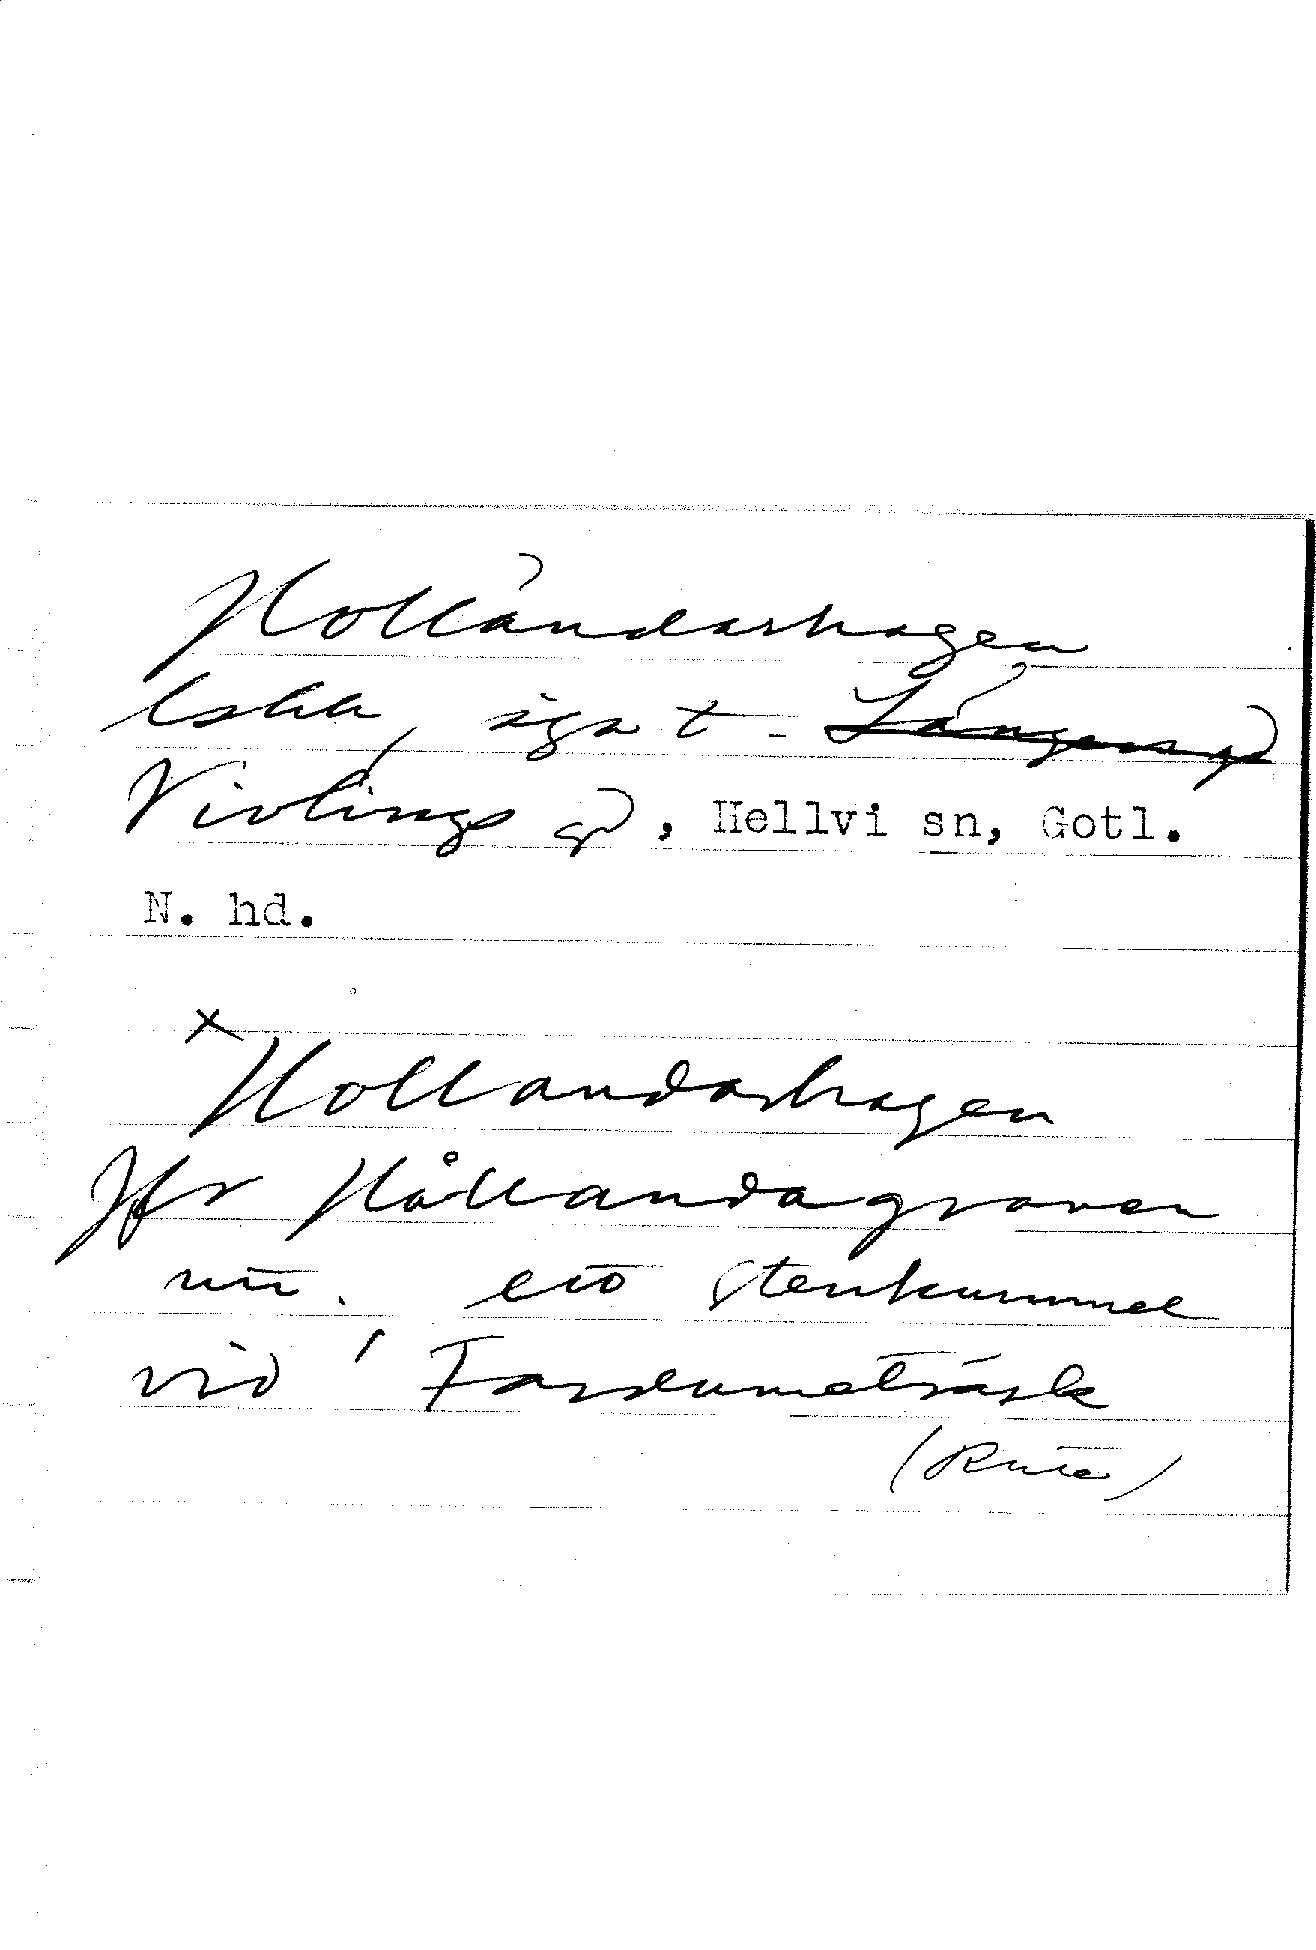 Hollandarhagen
äga t. Långers gd
Nivlings gd, Hellvi sn, Gotl.
N. hd.
x Hollandarhagen
Jfr Hållandagraven
nu. ett stenkummel
vid Fardumeträsk
(Rute)